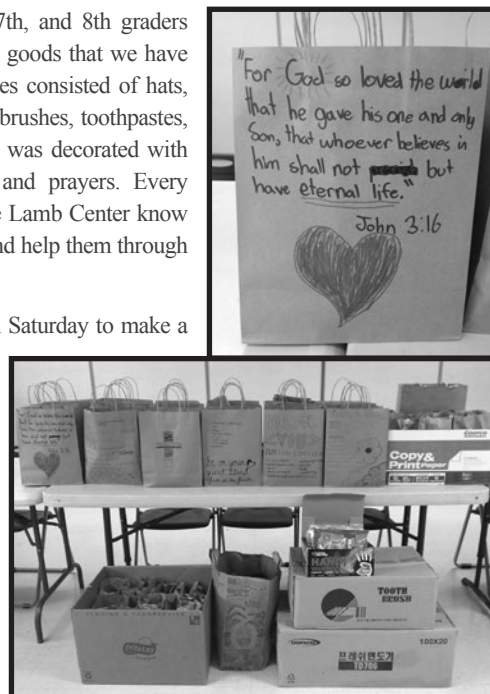 7th, and 8th graders
goods that we have
es consisted of hats,
brushes, toothpastes,
was decorated with
and prayers. Every
e Lamb Center know
nd help them through
n Saturday to make a
"For God so loved the world
that he gave his one and only
Son, that whoever believes in
him shall not but
have eternal life."
John 3:16
Copy&
Print Paper
TOOTH
BRUSH
100X20
TD706